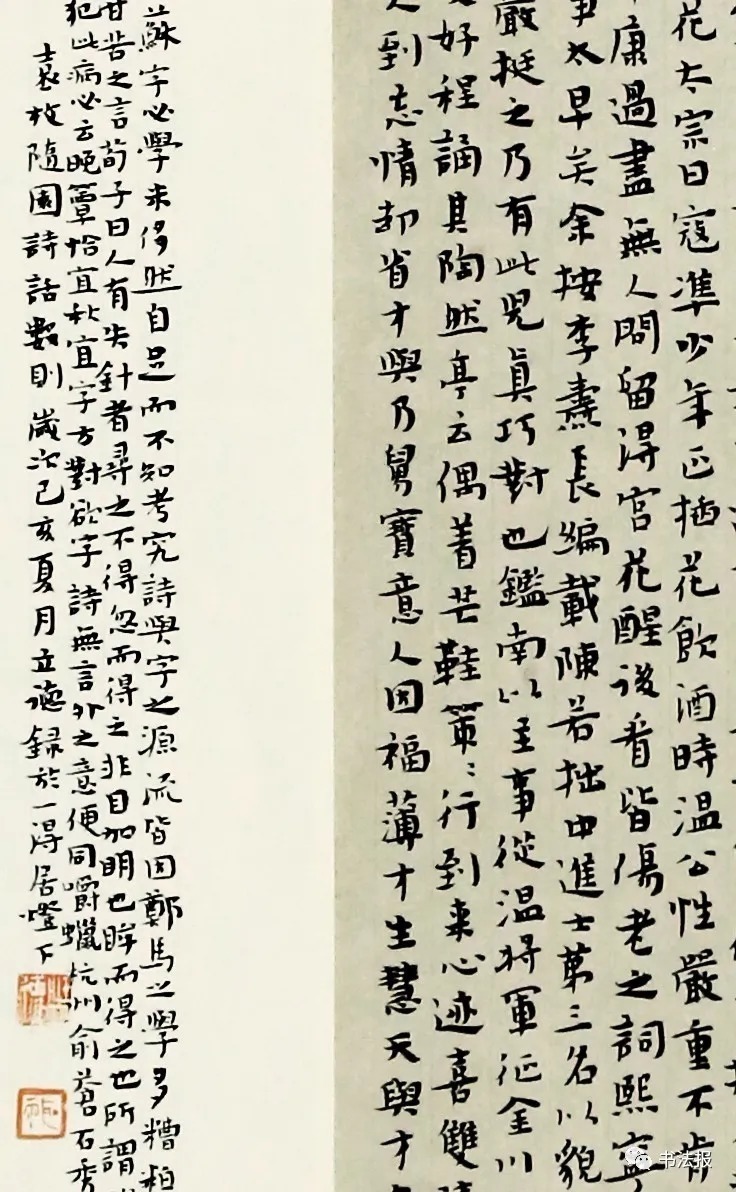 花太宗曰寇準少年正插花飲酒時温公性嚴重不肯
康過盡無人問留得宮花醒後看皆傷老之詞熙寧
事太早矣余按李燾長編載陳若拙中進士第三名以貌
嚴挺之乃有此兒真巧對也鑑南以主事從温將軍征金川
好程誦其陶然亭云偶着芒鞋策策行到来心迹喜雙
人到忘情却省才與乃舅寶意人因福薄才生慧天與才
蘇字必學米侈然自足而不知考究詩與字之源流皆因鄭馬之學多糟粕
甘苦之言荀子曰人有失針者尋之不得忽而得之非目加明也眸而得之也所謂
犯此病必云晚覃恰宜秋宜字方對欲字詩無言外之意便同嚼蠟杭州俞蒼石秀
袁枚隨園詩話數則歲次己亥夏月立德録於一得居燈下
书法报